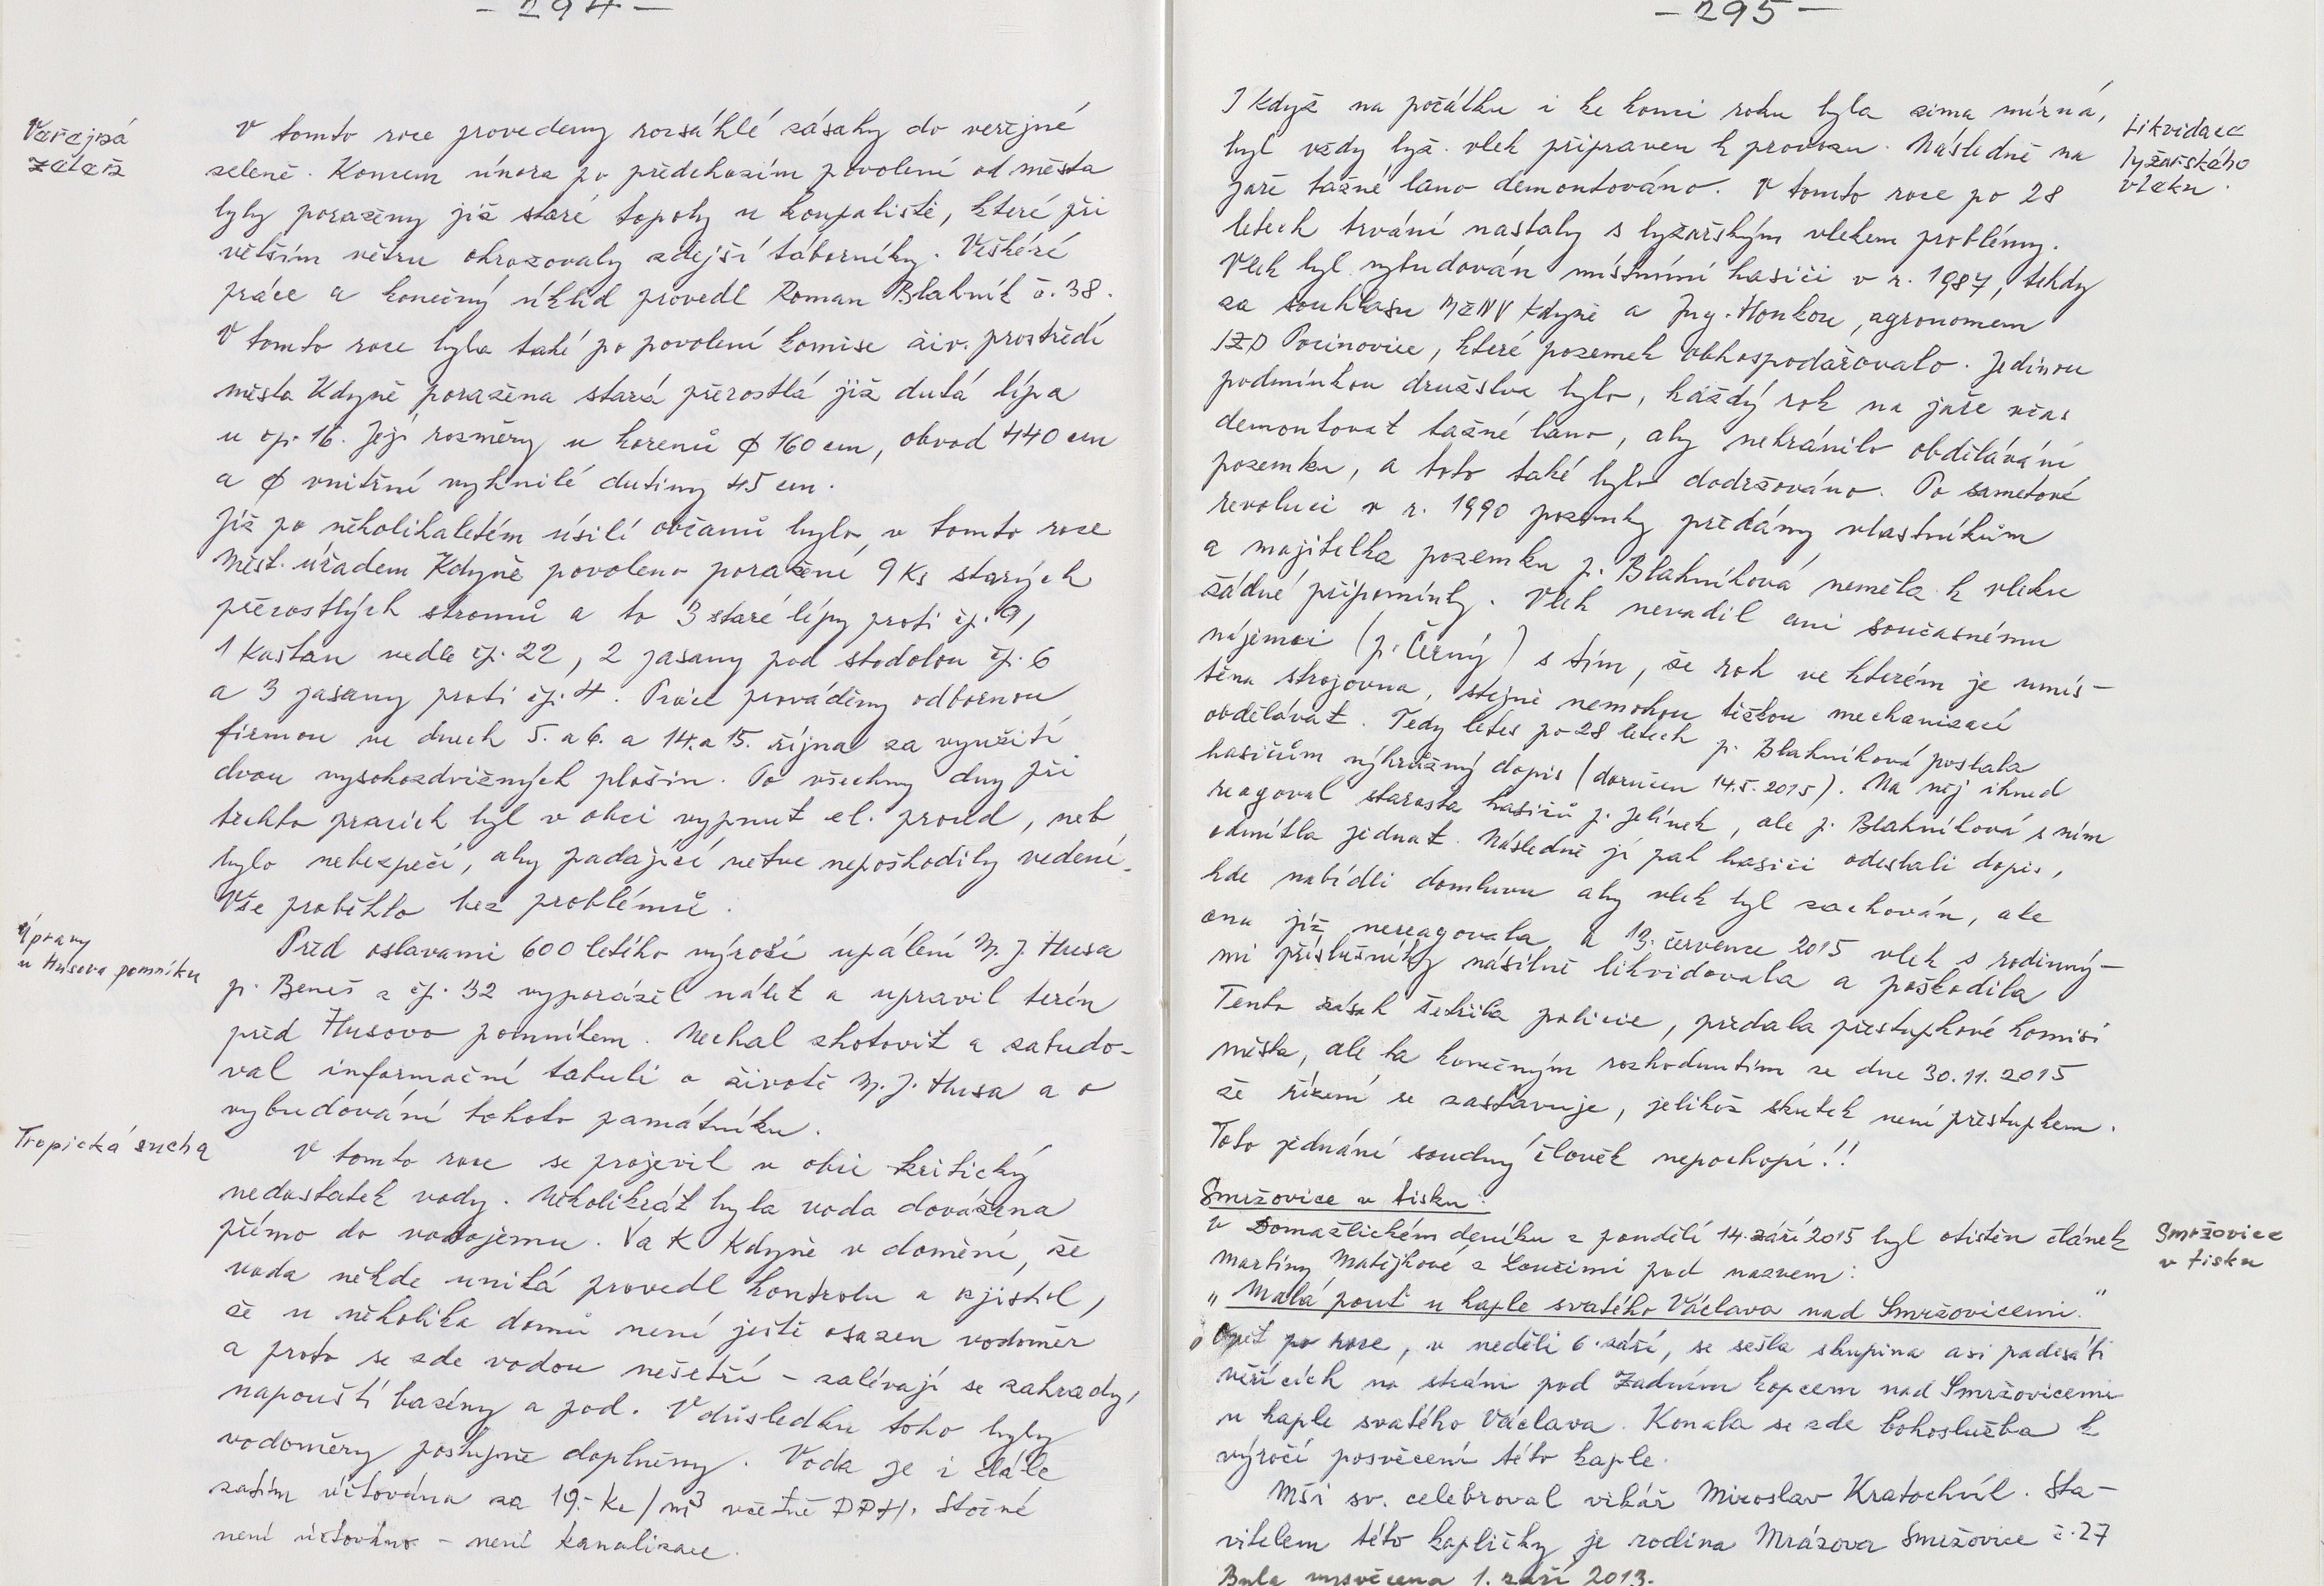 - 294 -
Veřejná
zeleň
V tomto roce provedeny rozsáhlé zásahy do veřejné
zeleně. Koncem února po předchozím povolení od města
byly poraženy již staré topoly u koupaliště, které při
větším větru ohrozovaly zdejší táborníky. Veškéré
práce a konečný úklid provedl Roman Blahník č. 38.
V tomto roce byla také po povolení komise živ. prostředí
města Kdyně poražena stará přerostlá již dutá lípa
u čp. 16. Její rozměry u kořenů ϕ 160 cm, obvod 440 cm
a ϕ vnitřní vyhnilé dutiny 45 cm.
Již po několikaletém úsilí občanů bylo v tomto roce
Měst. úřadem Kdyně povoleno poražení 9 ks starých
přerostlých stromů a to 3 staré lípy proti čp. 9,
1 kaštan vedle čp. 22, 2 jasany pod stodolou čp. 6
a 3 jasany proti čp. 4. Práce prováděny odbornou
firmou ve dnech 5. a 6. a 14. a 15. října za využití
dvou vysokozdvižných plošin. Po všechny dny při
těchto pracích byl v obci vypnut el. proud, neb
bylo nebezpečí, aby padající větve nepoškodily vedení.
Vše proběhlo bez problémů.
Úpravy
u Husova pomníku
Před oslavami 600 letého výročí upálení M. J. Husa
p. Beneš z čp. 32 vyporážel nálet a upravil terén
před Husovo pomníkem. Nechal zhotovit a zabudo-
val informační tabuli o životě M. J. Husa a o
vybudování tohoto památníku.
Tropická sucha
V tomto roce se projevil v obci kritický
nedostatek vody. Několikrát byla voda dovážena
přímo do vodojemu. VaK Kdyně v domění, že
voda někde uniká provedl kontrolu a zjistil,
že u několika domů není ještě osazen vodoměr
a proto se zde vodou nešetří - zalévají se zahrady,
napouští bazény a pod. V důsledku toho byly
vodoměry postupně doplněny. Voda je i stále
zatím účtována za 19.- Kč/m³ včetně DPH. Stočné
není účtováno - není kanalizace.
- 295 -
I když na počátku i ke konci roku byla zima mírná,
byl vždy lyž. vlek připraven k provozu. Následně na
jaře tažné lano demontováno. V tomto roce po 28
letech trvání nastaly s lyžařským vlekem problémy.
Likvidace
lyžařského
vleku.
Vlek byl vybudován místními hasiči v r. 1987, tehdy
za souhlasu MěNV Kdyně a Ing. Honkou, agronomem
JZD Pocinovice, které pozemek obhospodařovalo. Jedinou
podmínkou družstva bylo, každý rok na jaře včas
demontovat tažné lano, aby nebránilo obdělávání
pozemku, a toto také bylo dodržováno. Po sametové
revoluci v r. 1990 pozemky předány vlastníkům
a majitelka pozemku p. Blahníková neměla k vleku
žádné připomínky. Vlek nevadil ani současnému
nájemci (p. Černý) s tím, že roh ve kterém je umís-
těna strojovna, stejně nemohou těžkou mechanizací
obdělávat. Tedy letos po 28 letech p. Blahníková poslala
hasičům výhružný dopis (doručen 14.5.2015). Na něj ihned
reagoval starosta hasičů p. Jelínek, ale p. Blahníková s ním
odmítla jednat. Následně jí pak hasiči odeslali dopis,
kde nabídli domluvu aby vlek byl zachován, ale
ona již nereagovala a 13. července 2015 vlek s rodinný-
mi příslušníky násilně likvidovala a poškodila
Tento zásah šetřila policie, předala přestupkové komisi
města, ale ta konečným rozhodnutím ze dne 30.11.2015
že řízení se zastavuje, jelikož skutek není přestupkem.
Toto jednání soudný člověk nepochopí!!
Smržovice v tisku:
V Domažlickém deníku z pondělí 14. září 2015 byl otištěn článek
Martiny Matějkové z Loučimi pod nazvem:
Smržovice
v tisku
„Malá pouť u kaple svatého Václava nad Smržovicemi."
„Opět po roce, v neděli 6. září, se sešla skupina asi padesáti
věřících na stráni pod Zadním kopcem nad Smržovicemi
u kaple svatého Václava. Konala se zde bohoslužba k
výročí posvěcení této kaple.
Mši sv. celebroval vikář Miroslav Kratochvíl. Sta-
vitelem této kapličky je rodina Mrázova Smržovice č. 27
Byla vysvěcena 1. září 2013.